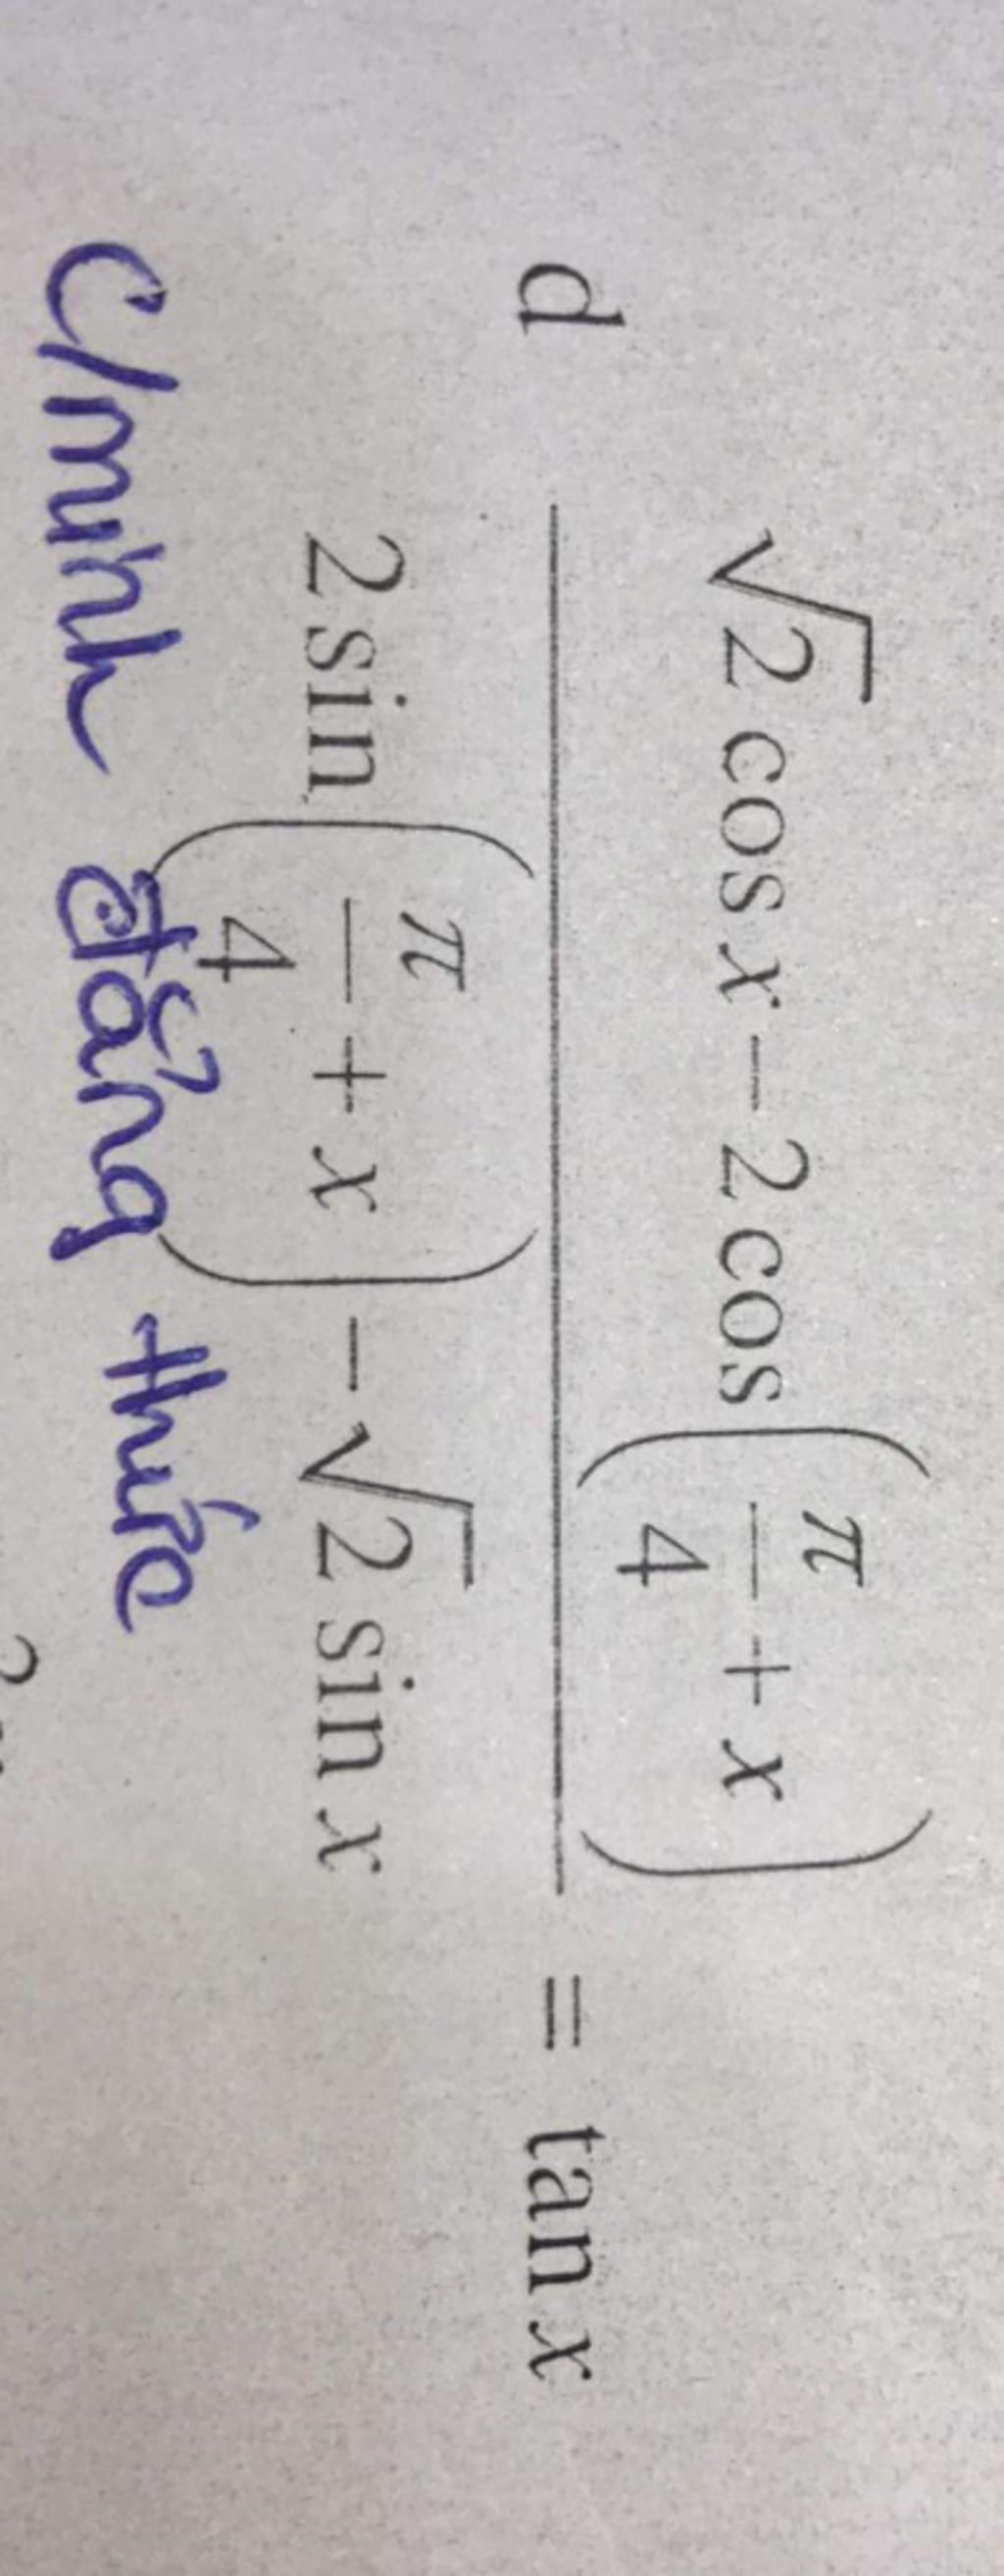 d
√2 cos x − 2 cos(π/4 + x)
2 sin(π/4 + x) − √2 sin x
= tan x
C/minh đẳng thức